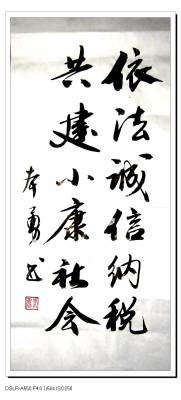 依法诚信纳税
共建小康社会
DSLR-A550 F4.0 1/60s ISO250